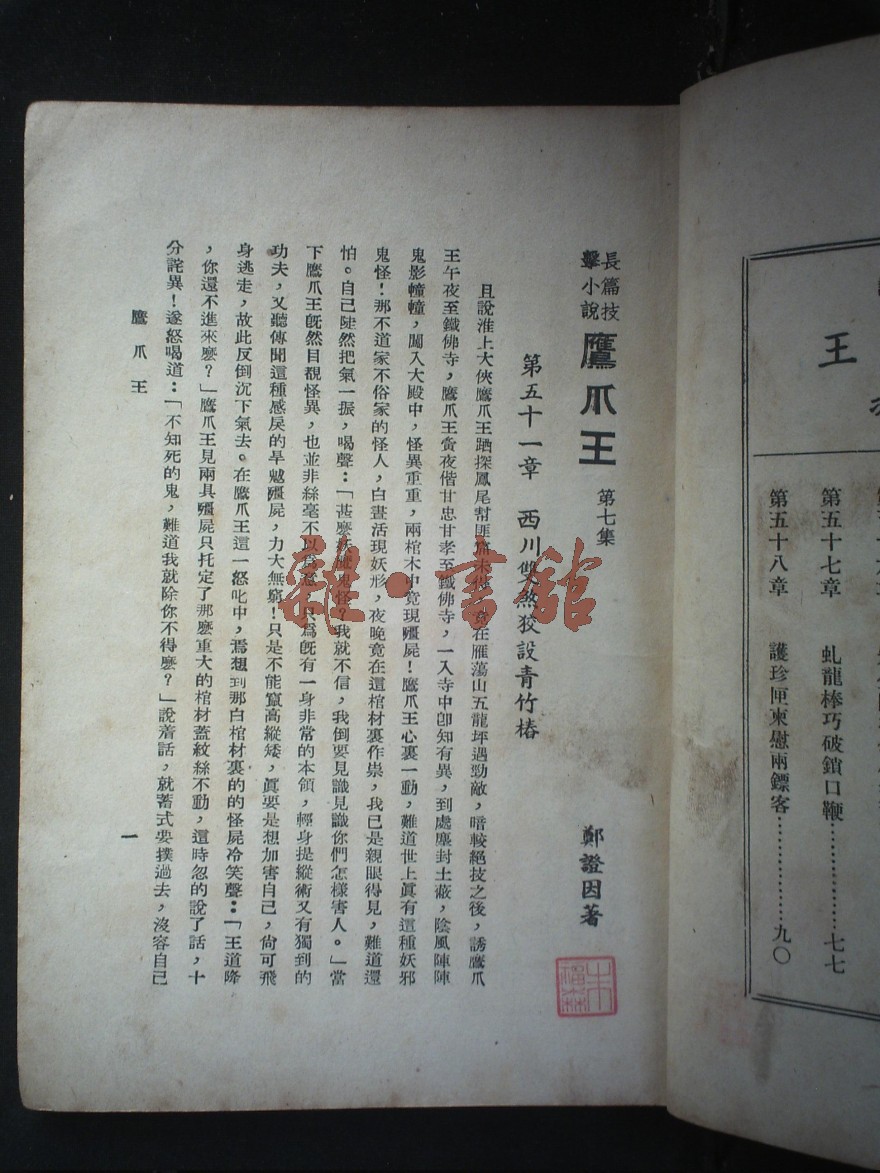 王
第五十七章 虬龍棒巧破鎖口鞭……………七七
第五十八章 護珍匣柬慰兩鏢客……………九〇
長篇技擊小說 鷹爪王 第七集
第五十一章 西川雙煞狡設青竹樁
鄭證因著
且說淮上大俠鷹爪王跴探鳳尾幫匪在雁蕩山五龍坪遇勁敵，暗較絕技之後，誘鷹爪
王午夜至鐵佛寺，鷹爪王夤夜偕甘忠甘孝至鐵佛寺，一入寺中卽知有異，到處塵封土蔽，陰風陣陣
鬼影幢幢，闖入大殿中，怪異重重，兩棺木中竟現殭屍！鷹爪王心裏一動，難道世上眞有這種妖邪
鬼怪！那不道家不俗家的怪人，白晝活現妖形，夜晚竟在這棺材裏作祟，我已是親眼得見，難道還
怕。自己陡然把氣一振，喝聲：「甚麽妖魔鬼怪？我就不信，我倒要見識見識你們怎樣害人。」當
下鷹爪王旣然目覩怪異，也並非絲毫不以爲意，只爲旣有一身非常的本領，輕身提縱術又有獨到的
功夫，又聽傳聞這種感戾的旱魃殭屍，力大無窮！只是不能竄高縱矮，眞要是想加害自己，尙可飛
身逃走，故此反倒沉下氣去。在鷹爪王這一怒叱中，焉想到那白棺材裏的的怪屍冷笑聲：「王道隆
，你還不進來麽？」鷹爪王見兩具殭屍只托定了那麽重大的棺材蓋紋絲不動，這時忽的說了話，十
分詫異！遂怒喝道：「不知死的鬼，難道我就除你不得麽？」說着話，就蓄式要撲過去，沒容自己
鷹爪王
一
雜·書館